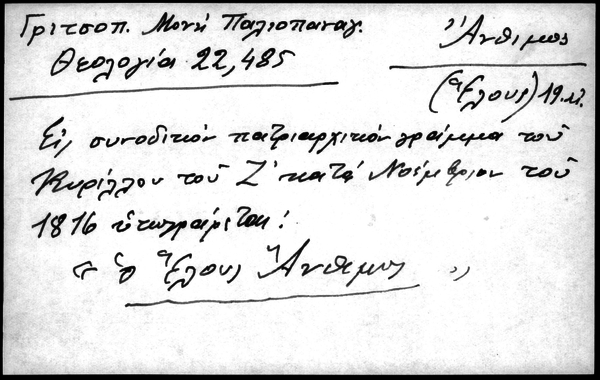 Γριτσοπ. Μονή Παλιοπαναγ.
Θεολογία 22,485
Ἄνθιμος
(Ἕλους) 19.αἰ.
Εἰς συνοδικόν πατριαρχικόν γράμμα τοῦ
Κυρίλλου τοῦ Ζ' κατά Νοέμβριον τοῦ
1816 ὑπογράφεται:
« ὁ Ἕλους Ἄνθιμος »